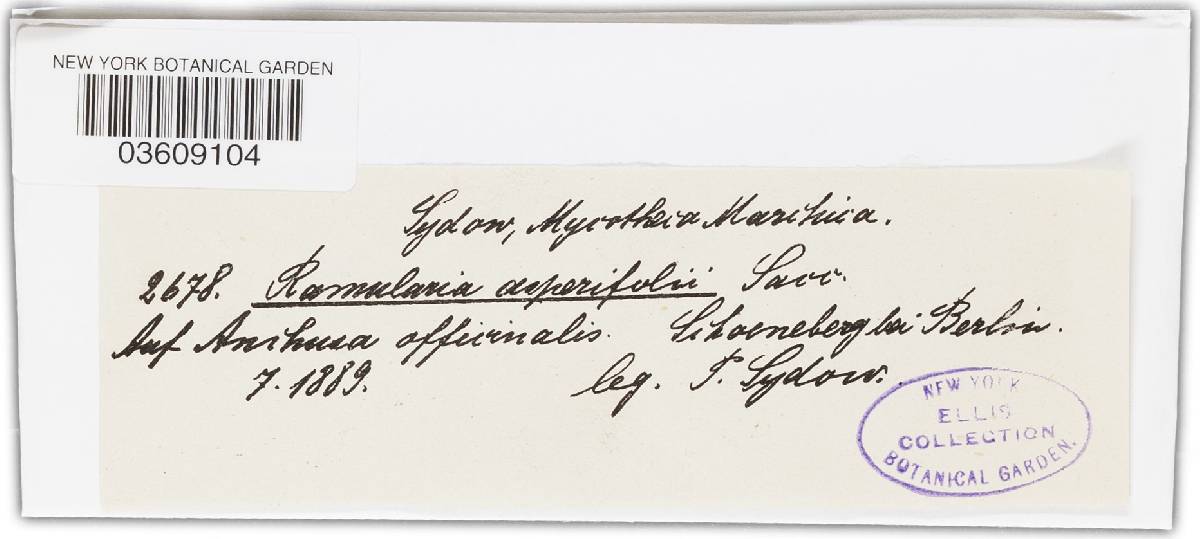 NEW YORK BOTANICAL GARDEN
03609104
Sydow, Mycotheca Marchica.
2678. Ramularia asperifolii Sacc.
Auf Anchusa officinalis. Schoeneberg bei Berlin.
7. 1889. leg. P. Sydow.
NEW YORK
ELLIS
COLLECTION
BOTANICAL GARDEN.